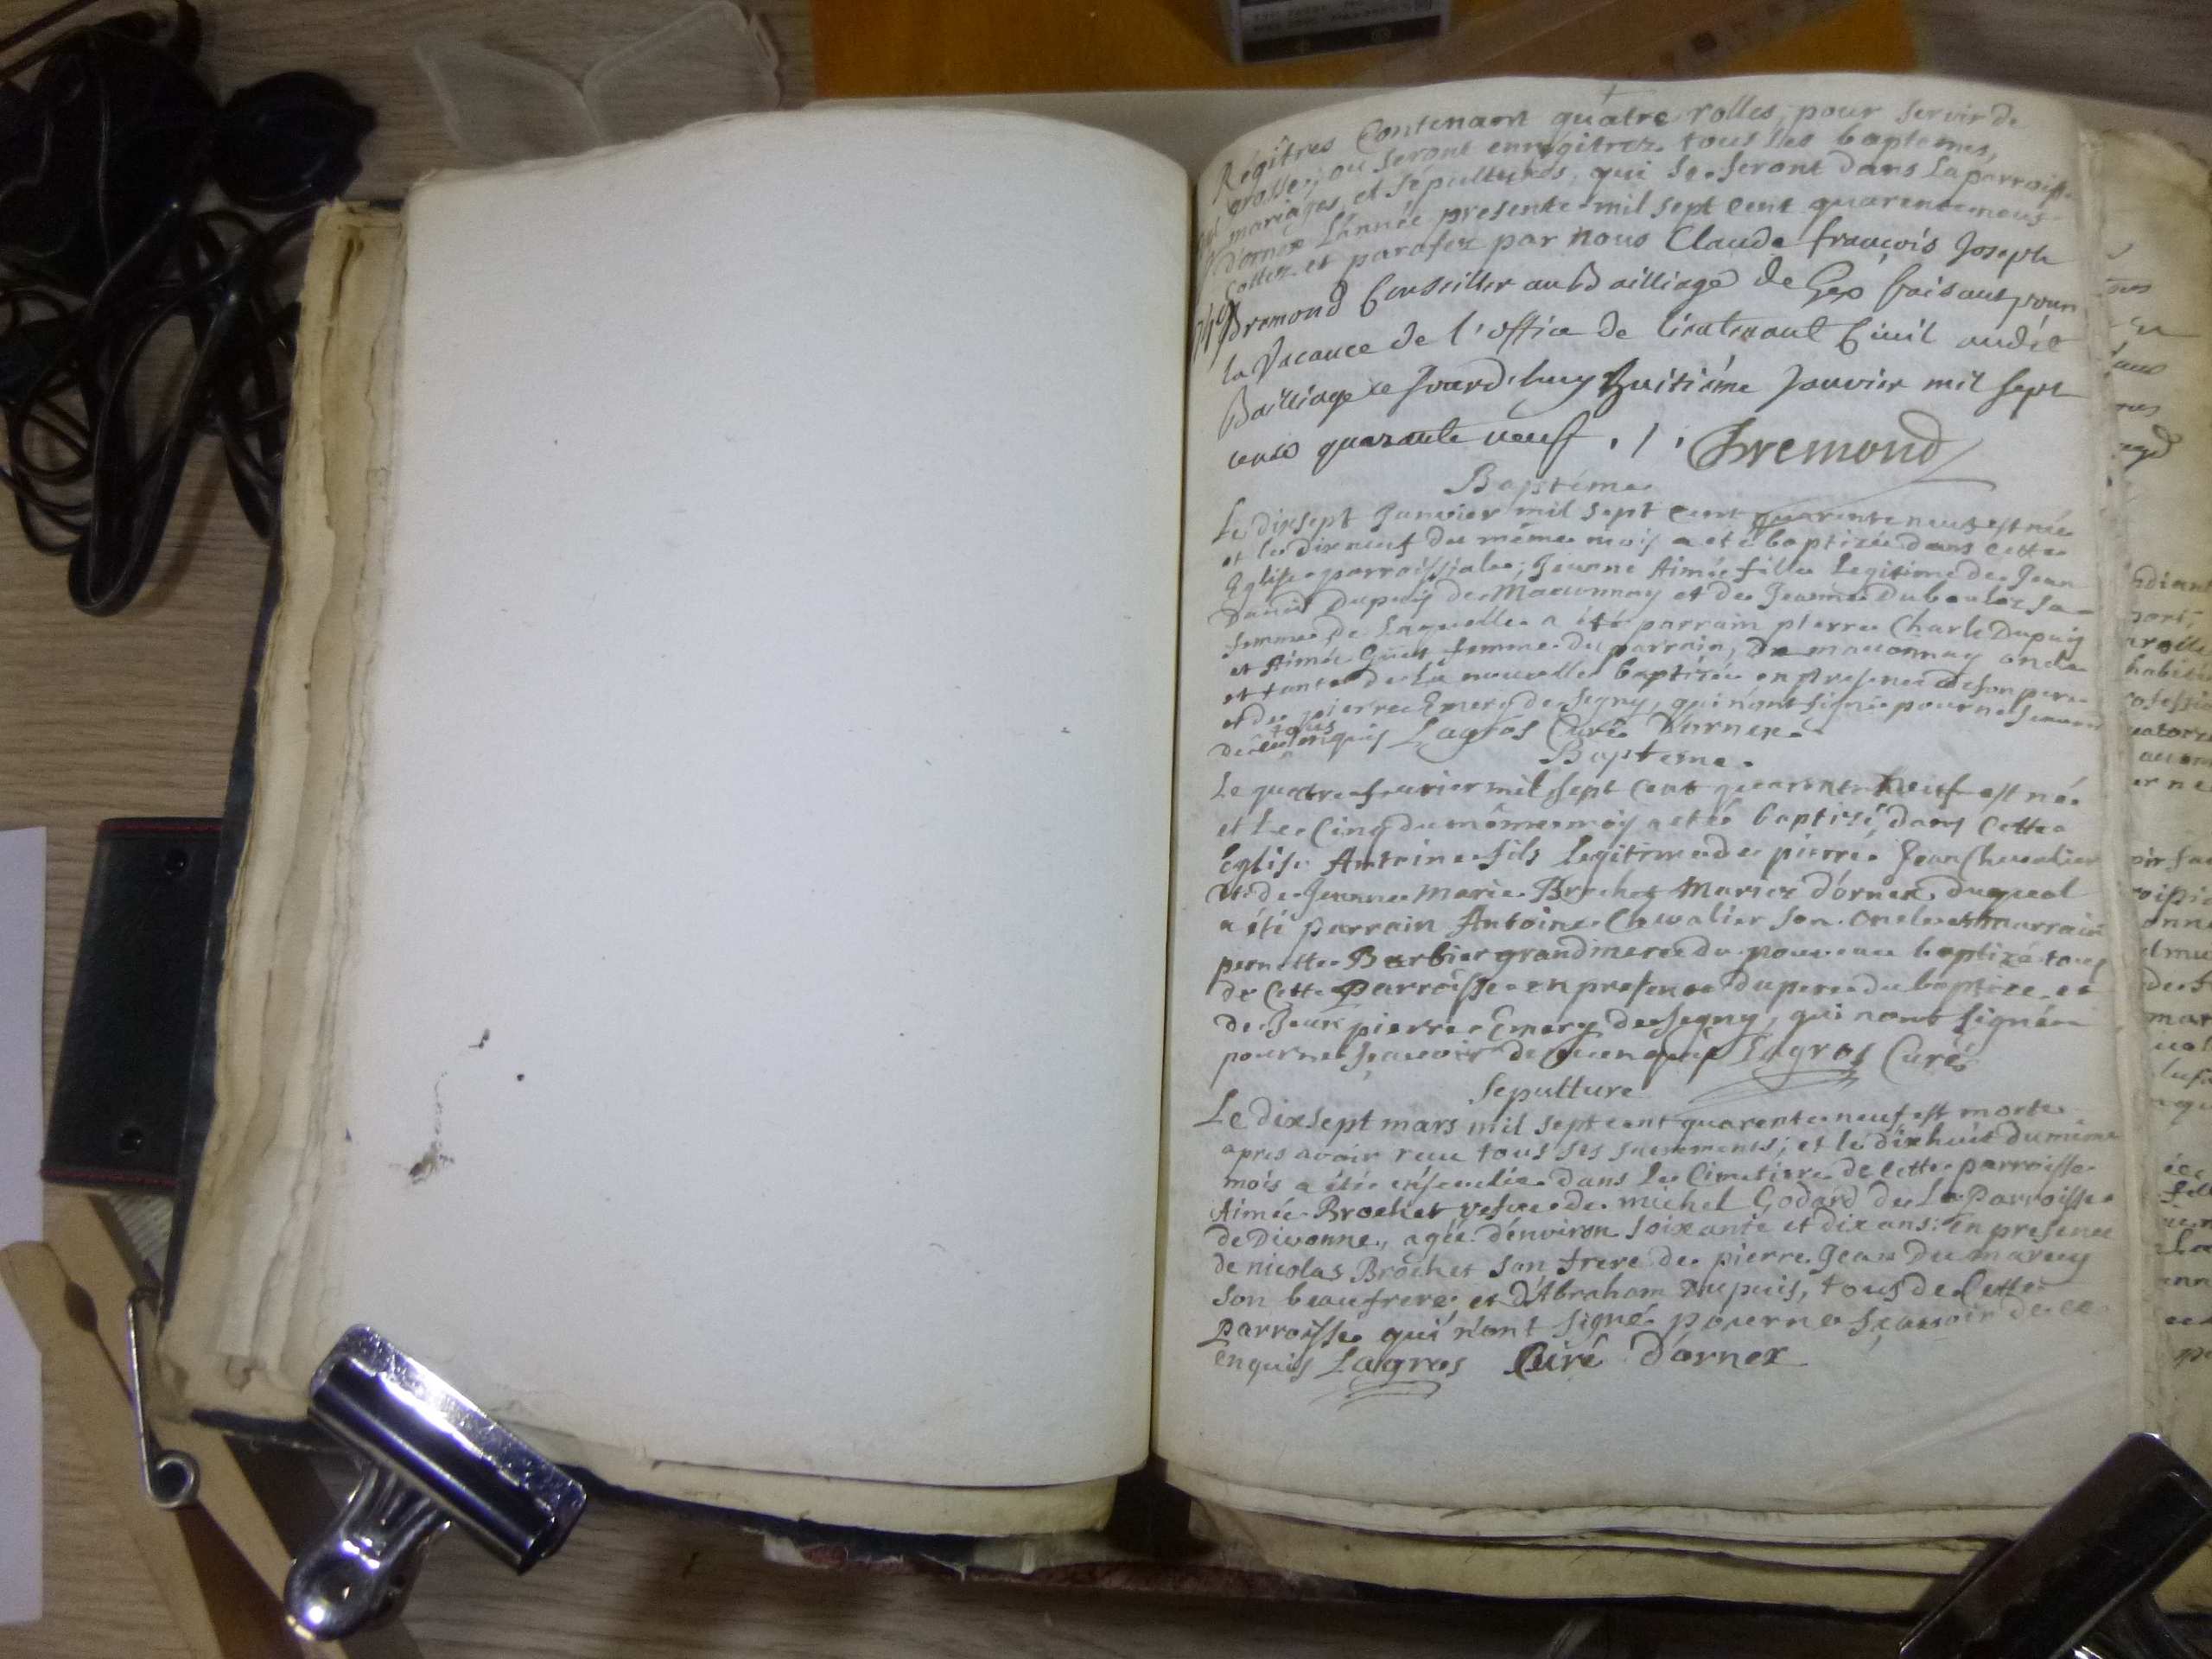 Régitres Contenant quatre rolles, pour servir de
grosse, ou seront enrégitrez tous les baptemes,
mariages, et sépultures, qui se feront dans la parroisse
d'ornex L'année presente mil sept cent quarente neuf
cottez et parafez par nous Claude françois Joseph
Bremond Conseiller au Bailliage de Gex faisant pour
la Vacance de l'office de lieutenant Civil audit
Bailliage ce Jourd'huy huitiéme Janvier mil sept
cents quarante neuf . / . Bremond
Baptéme
Le dixsept Janvier mil sept cent quarente neuf est née
et le dixneuf du méme mois a eté baptizée dans cette
Eglise parroissiale; Jeanne Aimée fille legitime de Jean
David Dupuis de Maconnay et de Jeanne Duboulez sa
femme de Laquelle a été parrain pierre Charle Dupuis
et Aimée femme du parrain, de maconnay oncle
et tante de la nouvelle baptizée en presence de son pere
et de pierre Emery de Segny, qui n'ont signé pour ne scavoir
de ce tous enquis Lagros Curé D'ornex.
Bapteme.
Le quatre feurier mil sept cent quarente neuf est né
et Le Cinq du méme mois a eté baptisé dans Cette
église Antoine fils legitime de pierre Jean Chevalier
et de Jeanne Marie Brochet Mariez d'ornex, duquel
a été parrain Antoine Chevalier son oncle et marraine
pernette Barbier grandmere du nouveau baptizé tous
de Cette Parroisse en presence du pere du baptizé et
de Jean pierre Emery de Segny, qui n'ont signé
pour ne scavoir de ce enquis Lagros Curé
Sepulture
Le dixsept mars mil sept cent quarente neuf est morte
apres avoir receu tous ses sacrements; et le dixhuit du méme
mois a étée enseuelie dans le Cimetiere de cette parroisse
Aimée Brochet vefue de michel Godard de La Parroisse
de Divonne, agée d'environ soixante et dix ans: en presence
de nicolas Brochet son frere de pierre Jean Dumarcy
son beaufrere, et d'Abraham Dupuis, tous de Cette
Parroisse qui n'ont signé pour ne scavoir de ce
enquis Lagros Curé d'ornex